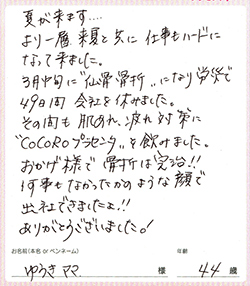 夏が来ます…
より一層 来夏と共に 仕事もハードに
なって来ました。
3月中旬に"仙骨骨折"になり労災で
49日間 会社を休みました。
その間も 肌あれ、疲れ対策に
"COCOROプラセンタ"を飲みました。
おかげ様で 骨折は完治!!
何事もなかったかのような顔で
出社できましたよ!!
ありがとうございました。!
お名前(本名 or ペンネーム) 年齢
ゆうき ママ 様 44 歳